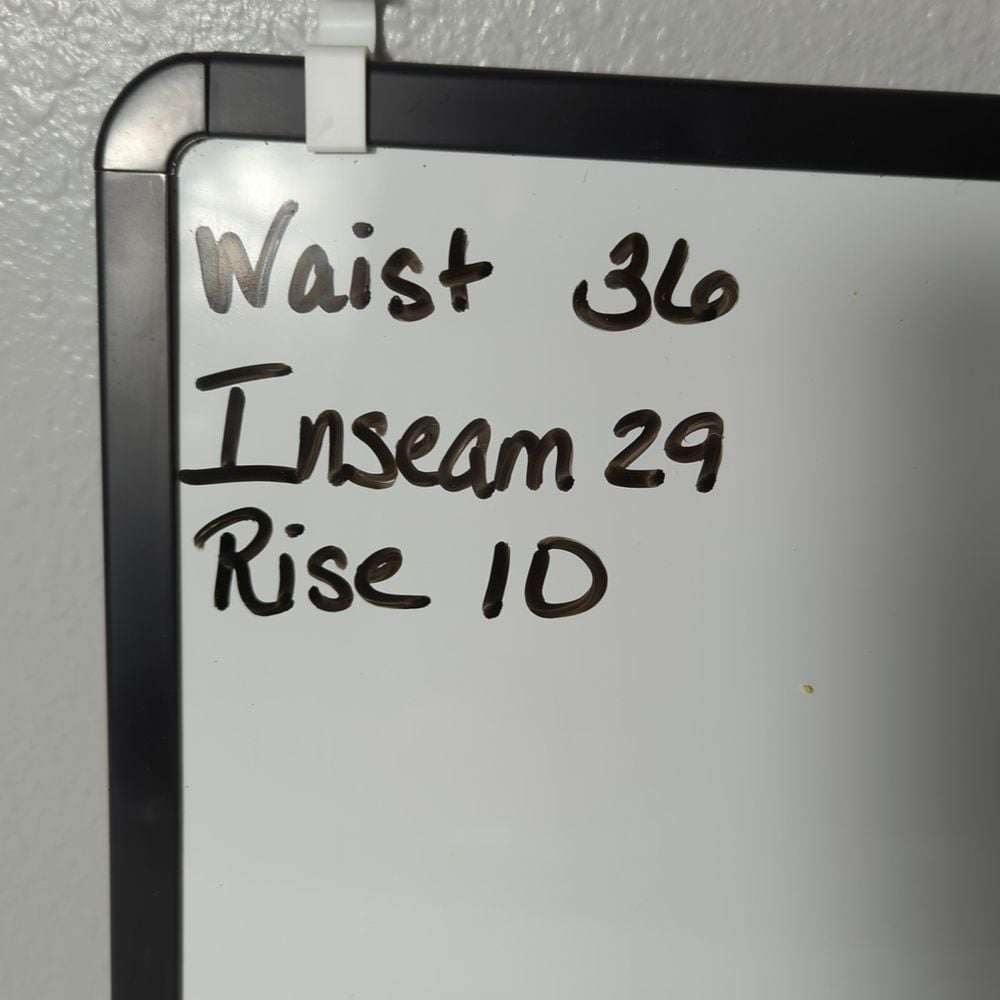 Waist 36
Inseam 29
Rise 10